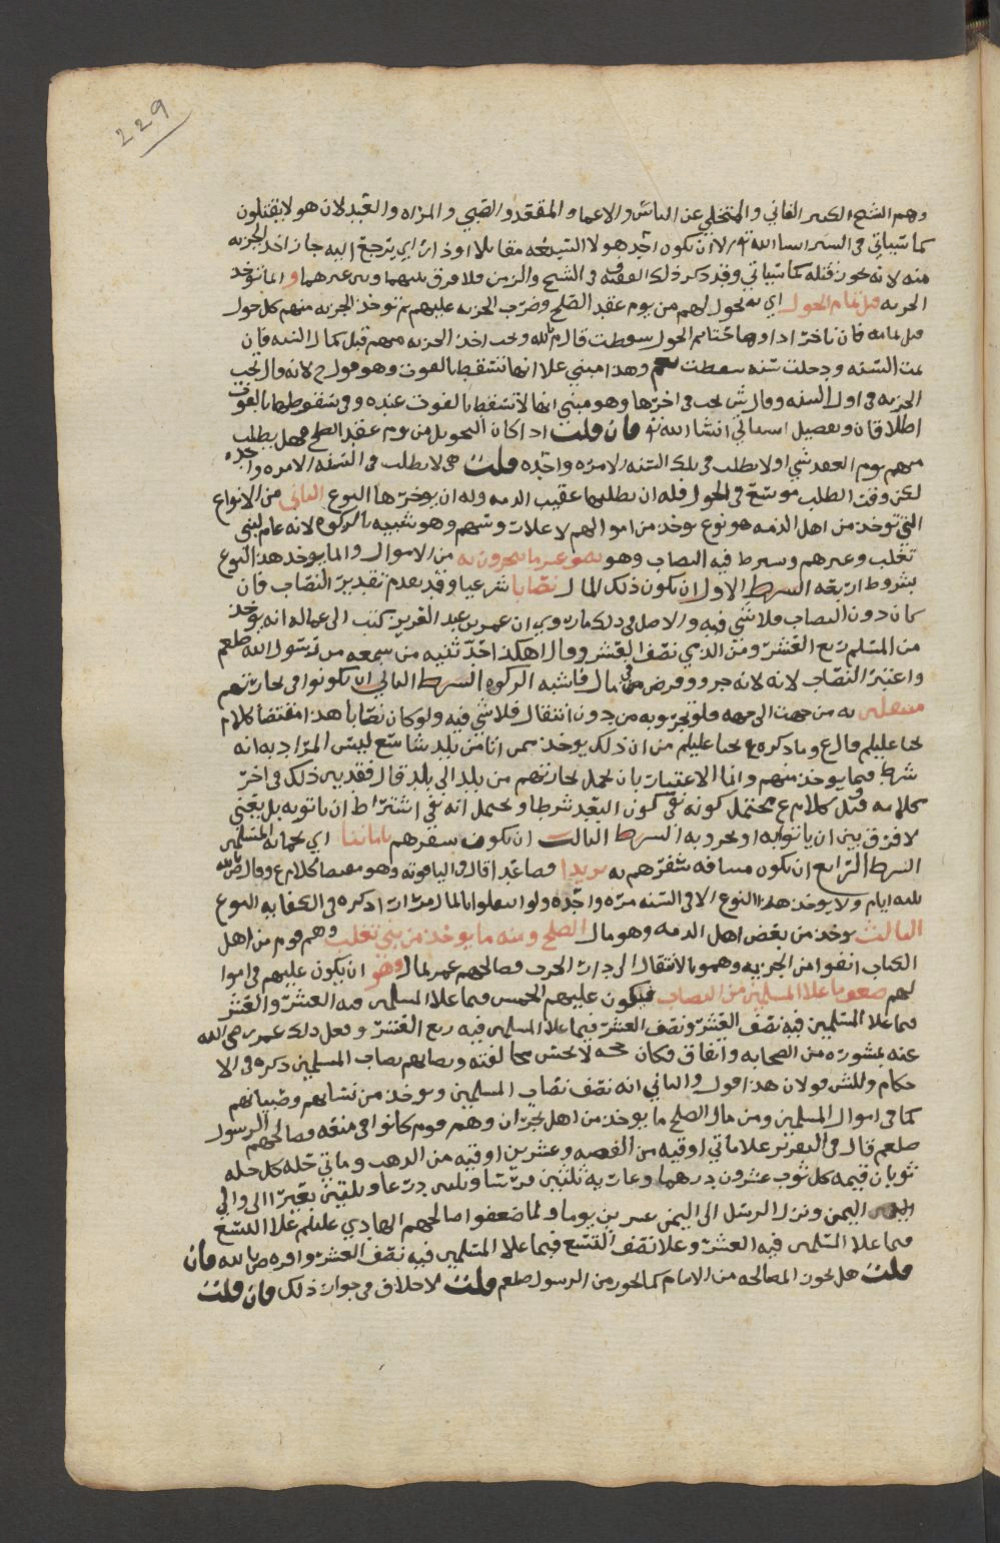 229
وهم الشيخ الكبير الفاني والمتخلي عن الناس والاعما والمقعد والصبي والمراه والعبد لان هولا يقتلون
كما سياتي في السير ان شا الله تع الا ان يكون احد هولا السبعه مقاتلا او ذا راي يرجع اليه جاز اخذ الجزيه
منه لانه يجوز قتله كما سياتي وقد ذكر ذلك الفقيه ف في الشيخ والزمن فلا فرق بينهما وبين غيرهما وانما توخذ
الجزيه قبل تمام الحول اي يحول لهم من يوم عقد الصلح وضرب الجزيه عليهم ثم توخذ الجزيه منهم كل حول
قبل تمامه فان تاخر اداوها حتا تم الحول سقطت قال م بالله ويجب اخذ الجزيه منهم قبل كمال السنه فان
تمت السنه ودخلت سنه سقطت وهذا مبني علا انها تسقط بالفوت وهو قول ح لانه قال تجب
الجزيه في اول السنه وقال ش يجب في اخرها وهو مبني انها لا تسقط بالفوت عنده وفي سقوطها بالفوت
اطلاقان وتفصيل سياتي انشا الله تع فان قلت اذا كان التحويل من يوم عقد الصلح فهل يطلب
منهم يوم العقد شي او لا يطلب في تلك السنه الا مره واحده قلت هي لا يطلب في السنه الا مره واحده
لكن وقت الطلب موسع في الحول فله ان يطلبها عقيب الذمه وله ان يوخرها النوع الثاني من الانواع
التي توخذ من اهل الذمه هو نوع يوخذ من اموالهم لا علا روسهم وهو شبيه بالزكوه لانه عام لبني
تغلب وغيرهم وشرط فيه النصاب وهو نصف عشر ما يتجرون به من الاموال وانما يوخذ هذا النوع
بشروط اربعه الشرط الاول ان يكون ذلك المال نصابا شرعيا وقد تقدم تقدير النصاب فان
كان دون النصاب فلا شي فيه والاصل في ذلك ما روي ان عمر بن عبد العزيز كتب الى عماله انه يوخذ
من المسلم ربع العشر ومن الذمي نصف العشر وقال هكذا حدثنيه من سمعه من رسول الله صلعم
واعتبر النصاب لانه لانه جزو وفرض من مال فاشبه الزكوه الشرط الثاني ان يكونوا في تجارتهم
منتقلين به من جهه الى جهه فلو تجروا به من دون انتقال فلا شي فيه ولو كان نصابا هذا مقتضا كلام
يحيا عليلم قال ع وما ذكره يحيا عليلم من ان ذلك يوخذ ممن اتا من بلد شاسع ليس المراد به انه
شرط فيما يوخذ منهم وانما الاعتبار بان يحمل تجارتهم من بلد الى بلد قال فقد بين ذلك في اخر
كلامه وقيل كلام ع محتمل كونه نفى كون البعد شرطا ويحتمل انه نفى اشتراط ان ياتوا به بل يعني
لا فرق بين ان ياتوا به او يخرجوا به الشرط الثالث ان يكون سفرهم باماننا اي بحمايه المسلمين
الشرط الرابع ان يكون مسافه سفرهم به بريدا فصاعدا قال في الياقوته وهو مقتضا كلام ع وقال ص بالله
ثلثه ايام ولا يوخذ هذا النوع الا في السنه مره واحده ولو انتقلوا بالمال مرارا ذكره في الكفايه النوع
الثالث يوخذ من بعض اهل الذمه وهو مال الصلح ومنه ما يوخذ من بني تغلب وهم قوم من اهل
الكتاب انفوا من الجزيه وهموا بالانتقال الى دار الحرب فصالحهم عمر بمال وهو ان يكون عليهم في اموا
لهم ضعف ما علا المسلمين من النصاب فيكون عليهم الخمس فيما علا المسلمين فيه العشر والعشر
فيما علا المسلمين فيه نصف العشر ونصف العشر فيما علا المسلمين فيه ربع العشر وفعل ذلك عمر رضي الله
عنه بمشوره من الصحابه واتفاق فكان حجه لا يحسن مخالفته ونصابهم نصاب المسلمين ذكره في الا
حكام وللش قولان هذا قول والثاني انه نصف نصاب المسلمين ويوخذ من نسائهم وصبيانهم
كما في اموال المسلمين ومن مال الصلح ما يوخذ من اهل نجران وهم قوم كانوا في منعه فصالحهم الرسول
صلعم قال في التقرير علا ماتي اوقيه من الفضه وعشرين اوقيه من الذهب وماتي حله كل حله
ثوبان قيمه كل ثوب عشرون درهما وعاريه ثلثين فرسا وثلثين درعا وثلثين بعيرا الى والي
اليمن ونزل الرسل الى اليمن عشرين يوما ولما ضعفوا صالحهم الهادي عليلم علا التسع
فيما علا المسلمين فيه العشر وعلا نصف التسع فيما علا المسلمين فيه نصف العشر واقره ص بالله فان
قلت هل يجوز المصالحه من الامام كما يجوز من الرسول صلعم قلت لا خلاف في جواز ذلك فان قلت